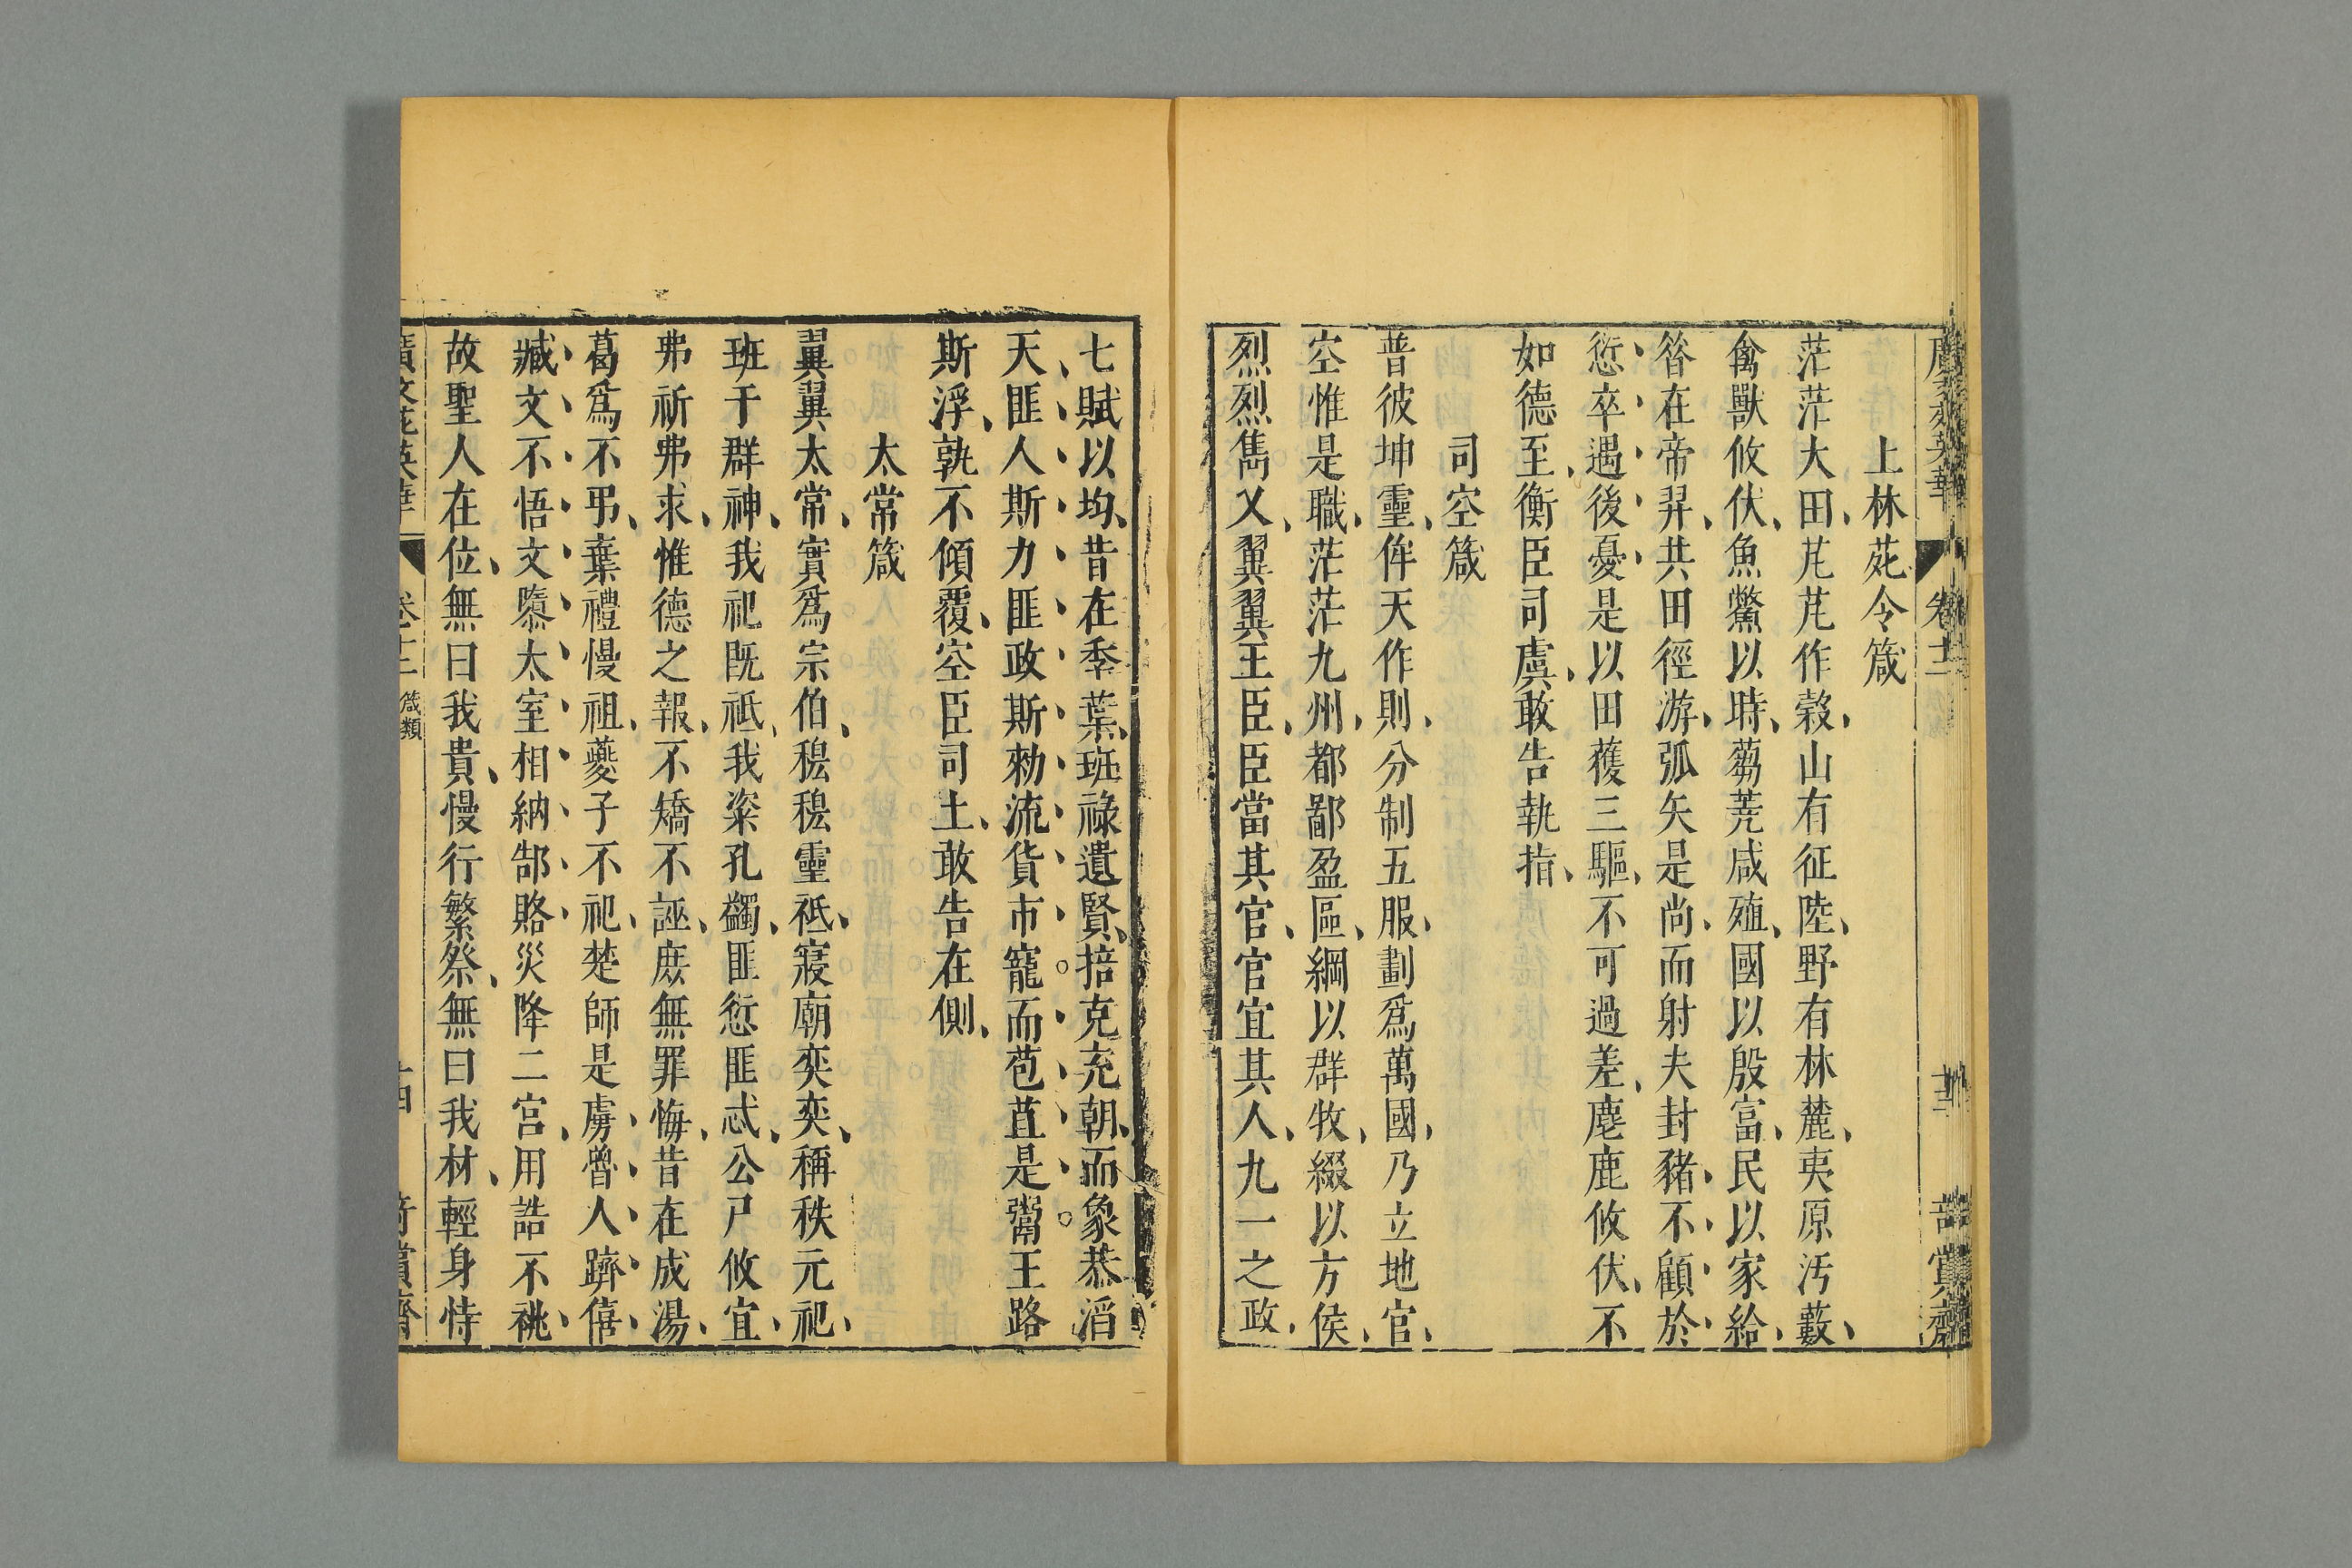 廣文苑英華 卷十二 奇賞齋
上林苑令箴
茫茫大田、芃芃作穀、山有征陸、野有林麓、夷原汚藪、
禽獸攸伏、魚鱉以時、蒭蕘咸殖、國以殷富、民以家給、
昝在帝羿、共田徑游、弧矢是尚、而射夫封豬、不顧於
愆、卒遇後憂、是以田獲三驅、不可過差、麀鹿攸伏、不
如德至、衡臣司虞、敢告執指、
司空箴
普彼坤靈、侔天作則、分制五服、劃爲萬國、乃立地官、
空惟是職、茫茫九州、都鄙盈區、綱以群牧、綴以方侯、
烈烈雋乂、翼翼王臣、臣當其官、官宜其人、九一之政、
七賦以均、昔在季葉、班祿遺賢、掊克充朝、而象恭滔
天、匪人斯力、匪政斯勑、流貨市寵、而苞苴是鬻、王路
斯浮、孰不傾覆、空臣司土、敢告在側、
太常箴
翼翼太常、實爲宗伯、穆穆靈祗、寢廟奕奕、稱秩元祀、
班于群神、我祀既祗、我粢孔蠲、匪愆匪忒、公尸攸宜、
弗祈弗求、惟德之報、不矯不誣、庶無罪悔、昔在成湯、
葛爲不弔、棄禮慢祖、夔子不祀、楚師是虜、魯人躋僖、
臧文不悟、文隳太室、相納郜賂、災降二宮、用誥不祧、
故聖人在位、無曰我貴、慢行繁祭、無曰我材、輕身恃
廣文苑英華 卷十二 箴類 十四 奇賞齋